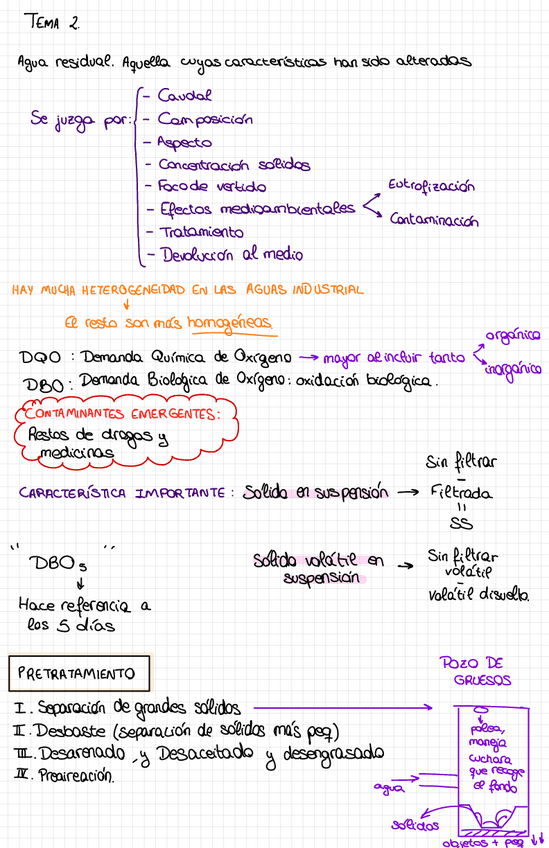 TEMA 2.
Agua residual. Aquella cuyas características han sido alteradas
Se juzga por:
- Caudal
- Composición
- Aspecto
- Concentración sólidos
- Foco de vertido
- Efectos medioambientales
Eutrofización
Contaminación
- Tratamiento
- Devolución al medio
HAY MUCHA HETEROGENEIDAD EN LAS AGUAS INDUSTRIAL
El resto son más homogéneas
DQO : Demanda Química de Oxígeno → mayor al incluir tanto
orgánico
inorgánico
DBO : Demanda Biológica de Oxígeno: oxidación biológica.
CONTAMINANTES EMERGENTES:
Restos de drogas y
medicinas
CARACTERÍSTICA IMPORTANTE : Sólido en suspensión →
Sin filtrar
-
Filtrada
=
SS
"DBO5"
Hace referencia a
los 5 días
Sólido volátil en
suspensión →
Sin filtrar
volátil
-
volátil disuelto.
PRETRATAMIENTO
I. Separación de grandes sólidos
II. Desbaste (separación de sólidos más peq)
III. Desarenado, y Desaceitado y desengrasado
IV. Preaireación.
POZO DE
GRUESOS
polea,
maneja
cuchara
que recoge
el fondo
agua
sólidos
objetos + peq ↓↓